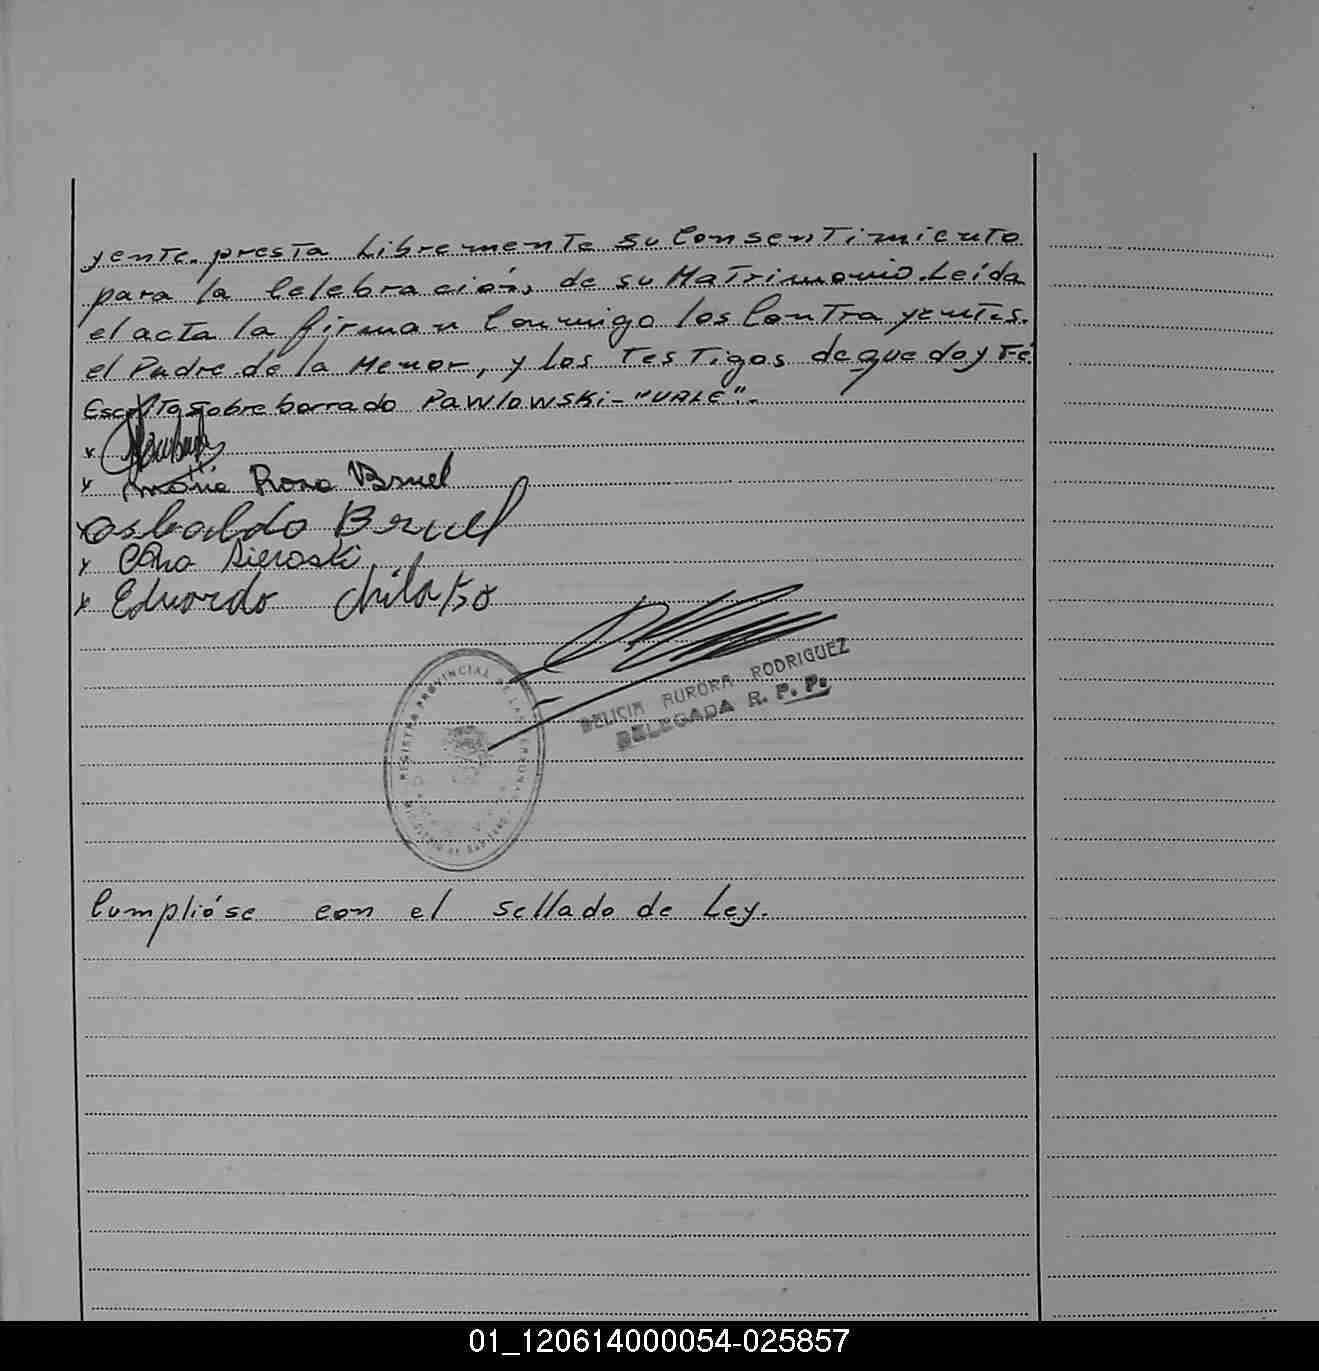 yente. presta Libremente su Consentimiento
para la Celebración, de su Matrimonio. Leída
el acta la firman Conmigo los Contrayentes.
el Padre de la Menor, y los Testigos de que doy Fé.
Escrito sobre borrado Pawlowski - "VALE". -
x
x Maria Rosa Bruel
x Osbaldo Bruel
x
x Eduardo
REGISTRO PROVINCIAL DE LAS PERSONAS
DELICIA AURORA RODRIGUEZ
DELEGADA R. P. P.
Cumplióse con el sellado de Ley.
01_120614000054-025857